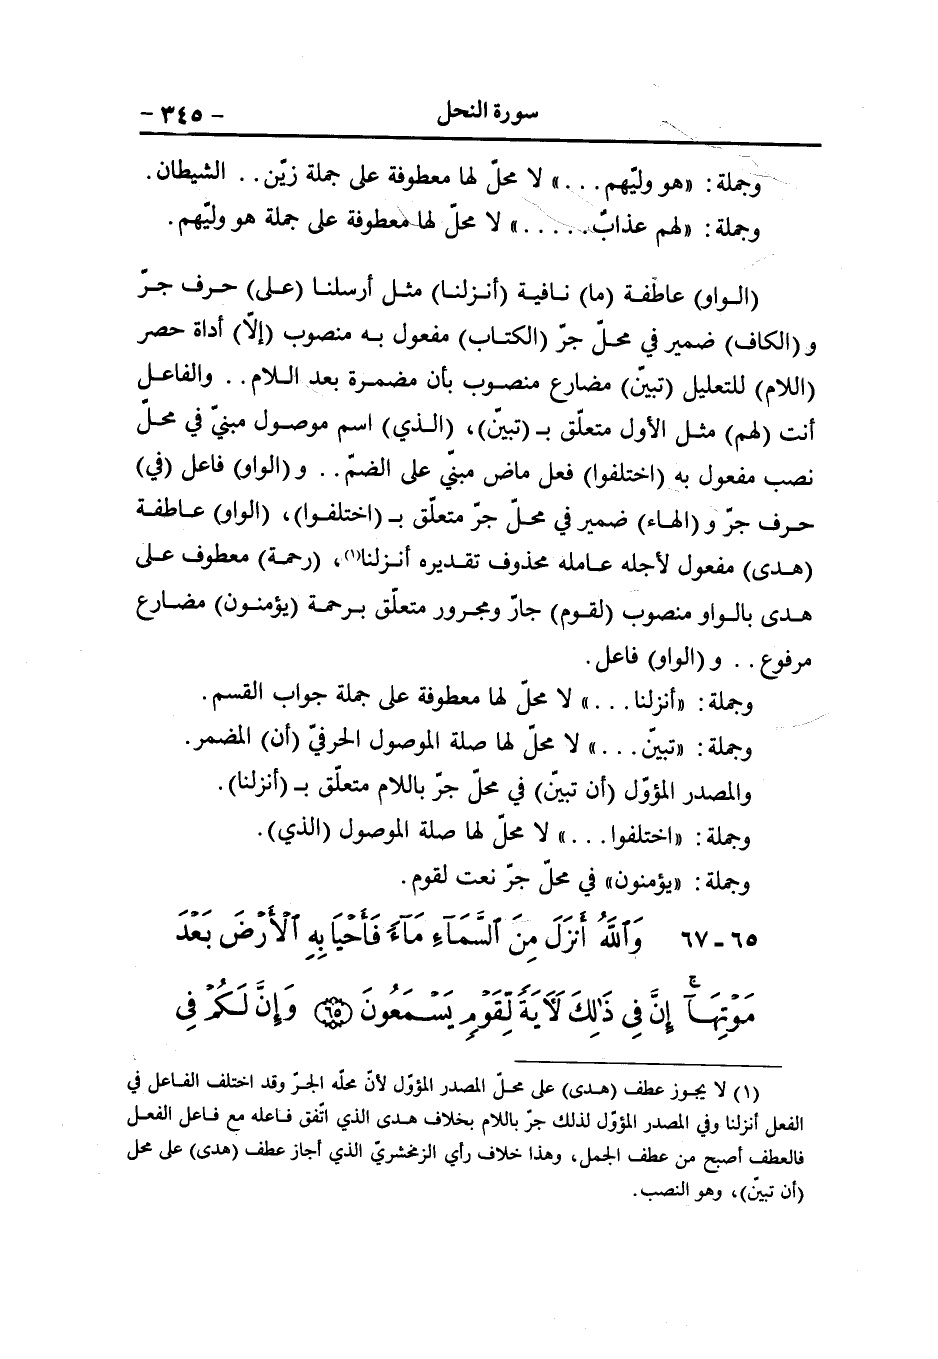 سورة النحل - ٣٤٥ -
وجملة: «هو وليّهم...» لا محلّ لها معطوفة على جملة زيّن.. الشيطان.
وجملة: «لهم عذابٌ.....» لا محلّ لها معطوفة على جملة هو وليّهم.
(الواو) عاطفة (ما) نافية (أنزلنا) مثل أرسلنا (على) حرف جرّ
و (الكاف) ضمير في محلّ جرّ (الكتاب) مفعول به منصوب (إلّا) أداة حصر
(اللام) للتعليل (تبينّ) مضارع منصوب بأن مضمرة بعد اللام.. والفاعل
أنت (لهم) مثل الأول متعلّق بـ (تبينّ)، (الذي) اسم موصول مبنيّ في محلّ
نصب مفعول به (اختلفوا) فعل ماض مبنّي على الضمّ.. و (الواو) فاعل (في)
حرف جرّ و (الهاء) ضمير في محلّ جرّ متعلّق بـ (اختلفوا)، (الواو) عاطفة
(هدى) مفعول لأجله عامله محذوف تقديره أنزلنا(١)، (رحمة) معطوف على
هدى بالواو منصوب (لقوم) جارّ ومجرور متعلّق برحمة (يؤمنون) مضارع
مرفوع.. و (الواو) فاعل.
وجملة: «أنزلنا...» لا محلّ لها معطوفة على جملة جواب القسم.
وجملة: «تبينّ...» لا محلّ لها صلة الموصول الحرفيّ (أن) المضمر.
والمصدر المؤوّل (أن تبينّ) في محلّ جرّ باللام متعلّق بـ (أنزلنا).
وجملة: «اختلفوا...» لا محلّ لها صلة الموصول (الذي).
وجملة: «يؤمنون» في محلّ جرّ نعت لقوم.
٦٥-٦٧ وَٱللَّهُ أَنزَلَ مِنَ ٱلسَّمَآءِ مَآءً فَأَحْيَا بِهِ ٱلْأَرْضَ بَعْدَ
مَوْتِهَآ ۚ إِنَّ فِى ذَٰلِكَ لَآيَةً لِّقَوْمٍ يَسْمَعُونَ ﴿٦٥﴾ وَإِنَّ لَكُمْ فِى
(١) لا يجوز عطف (هدى) على محلّ المصدر المؤوّل لأنّ محلّه الجرّ وقد اختلف الفاعل في
الفعل أنزلنا وفي المصدر المؤوّل لذلك جرّ باللام بخلاف هدى الذي اتّفق فاعله مع فاعل الفعل
فالعطف أصبح من عطف الجمل، وهذا خلاف رأي الزمخشريّ الذي أجاز عطف (هدى) على محل
(أن تبينّ)، وهو النصب.